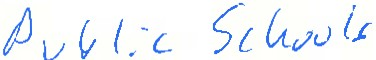 Public Schools